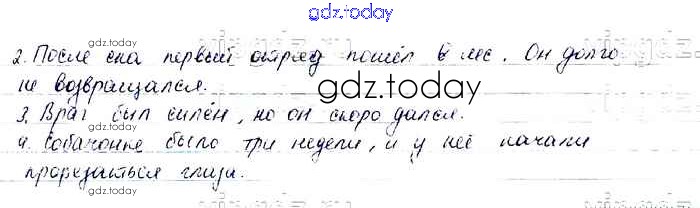 gdz.today
2. После сна первый отряд пошёл в лес. Он долго
не возвращался.
gdz.today
3. Враг был силён, но он скоро дался.
4. Собачонке было три недели, и у неё начали
прорезаться глаза.
gdz.today
gdz.today
gdz.today
gdz.today